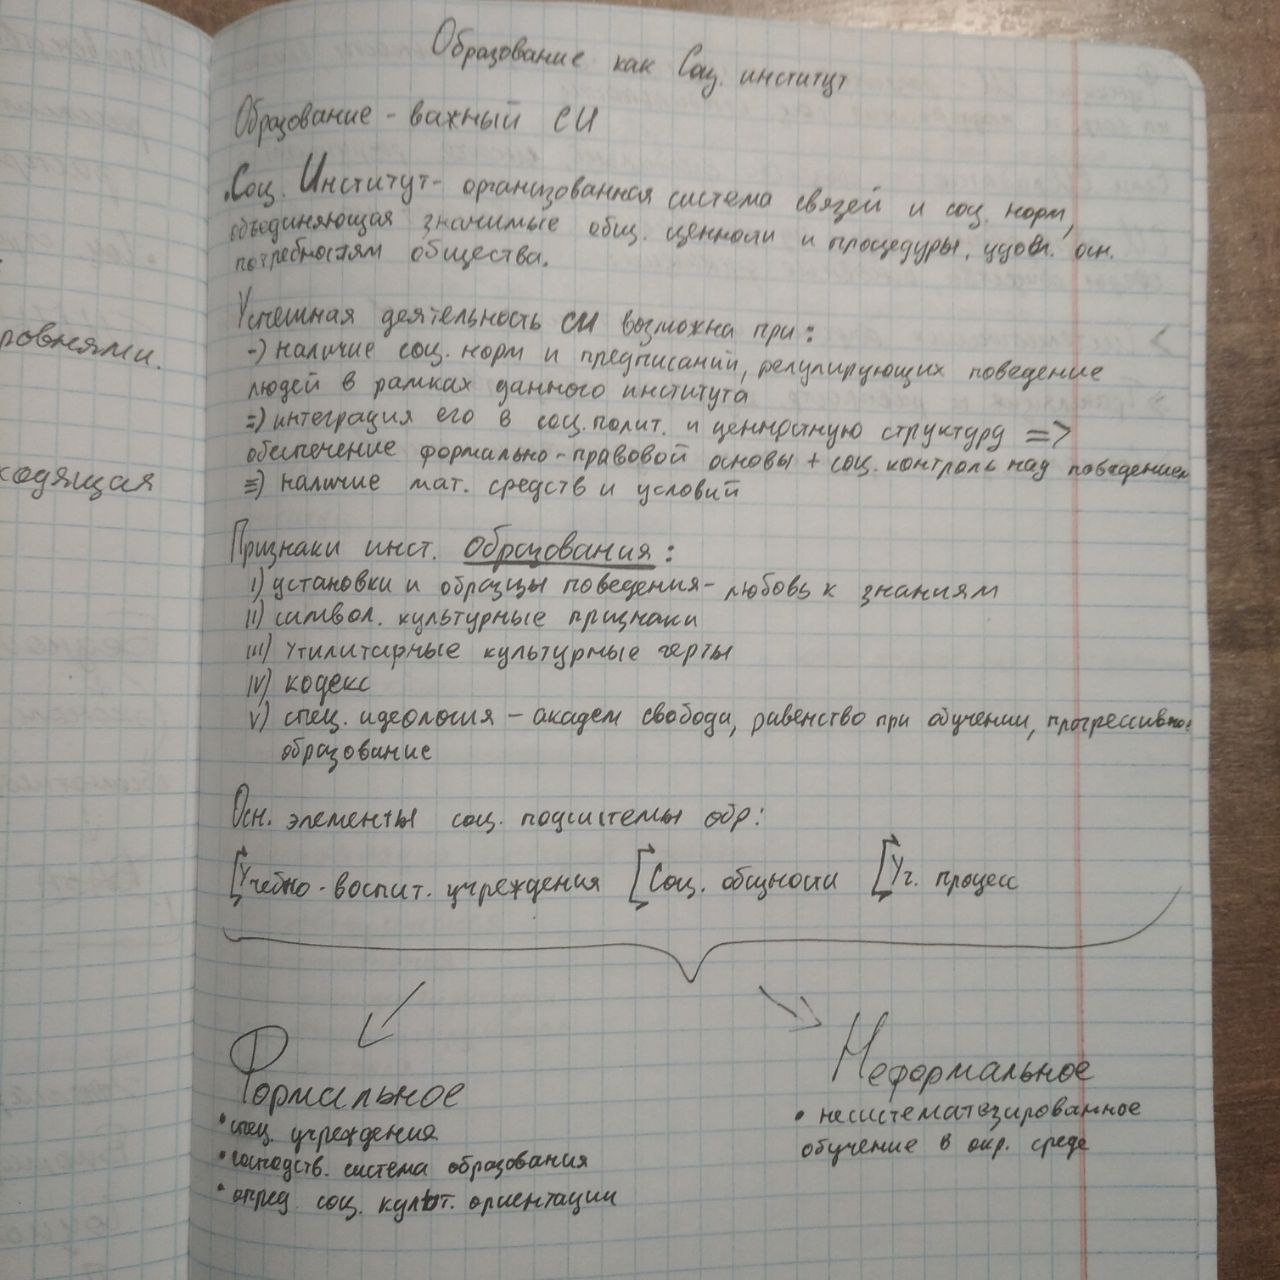 Образование как Соц. институт
Образование - важный СИ
Соц. Институт - организованная система связей и соц. норм,
объединяющая значимые общ. ценности и процедуры, удовл. осн.
потребностям общества.
Успешная деятельность СИ возможна при:
-) наличие соц. норм и предписаний, регулирующих поведение
людей в рамках данного института
=) интеграция его в соц. полит. и ценностную структуру =>
обеспечение формально-правовой основы + соц. контроль над поведением
≡) наличие мат. средств и условий
Признаки инст. образования:
I) установки и образцы поведения - любовь к знаниям
II) символ. культурные признаки
III) утилитарные культурные черты
IV) кодекс
V) спец. идеология - академ свобода, равенство при обучении, прогрессивное
образование
Осн. элементы соц. подсистемы обр:
Учебно-воспит. учреждения Соц. общности Уч. процесс
Формальное
• спец. учреждения
• господств. система образования
• опред. соц. культ. ориентации
Неформальное
• несистематезированное
обучение в окр. среде
ровнями.
ходящая